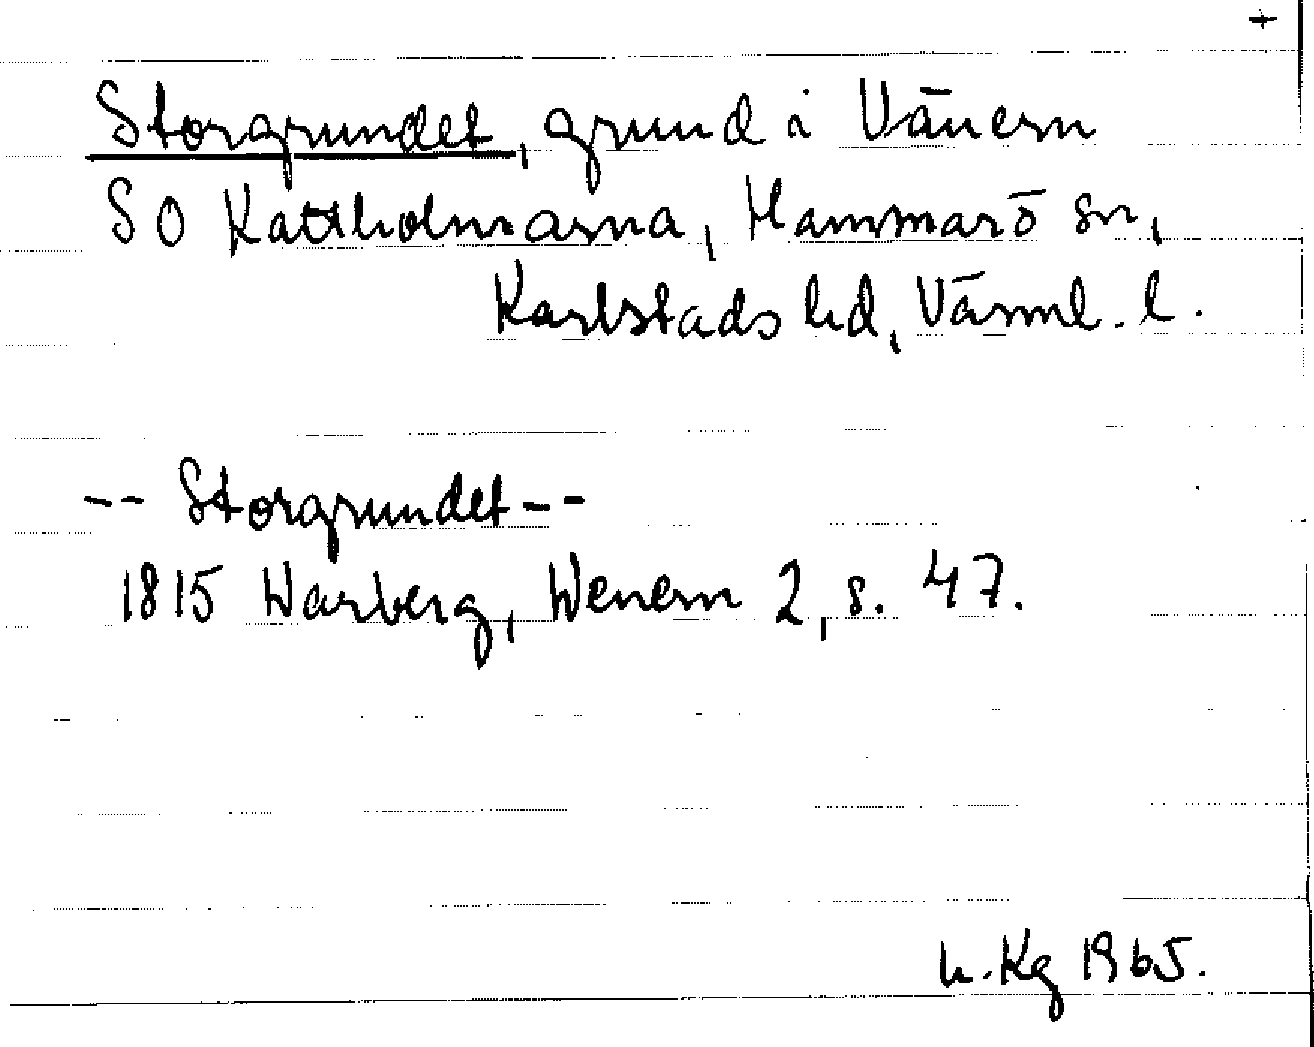 +
Storgrundet, grund i Vänern
SO Kattholmarna, Hammarö sn,
Karlstads hd, Värml. l.
-- Storgrundet --
1815 Warberg, Wenern 2, s. 47.
h. Kg 1965.